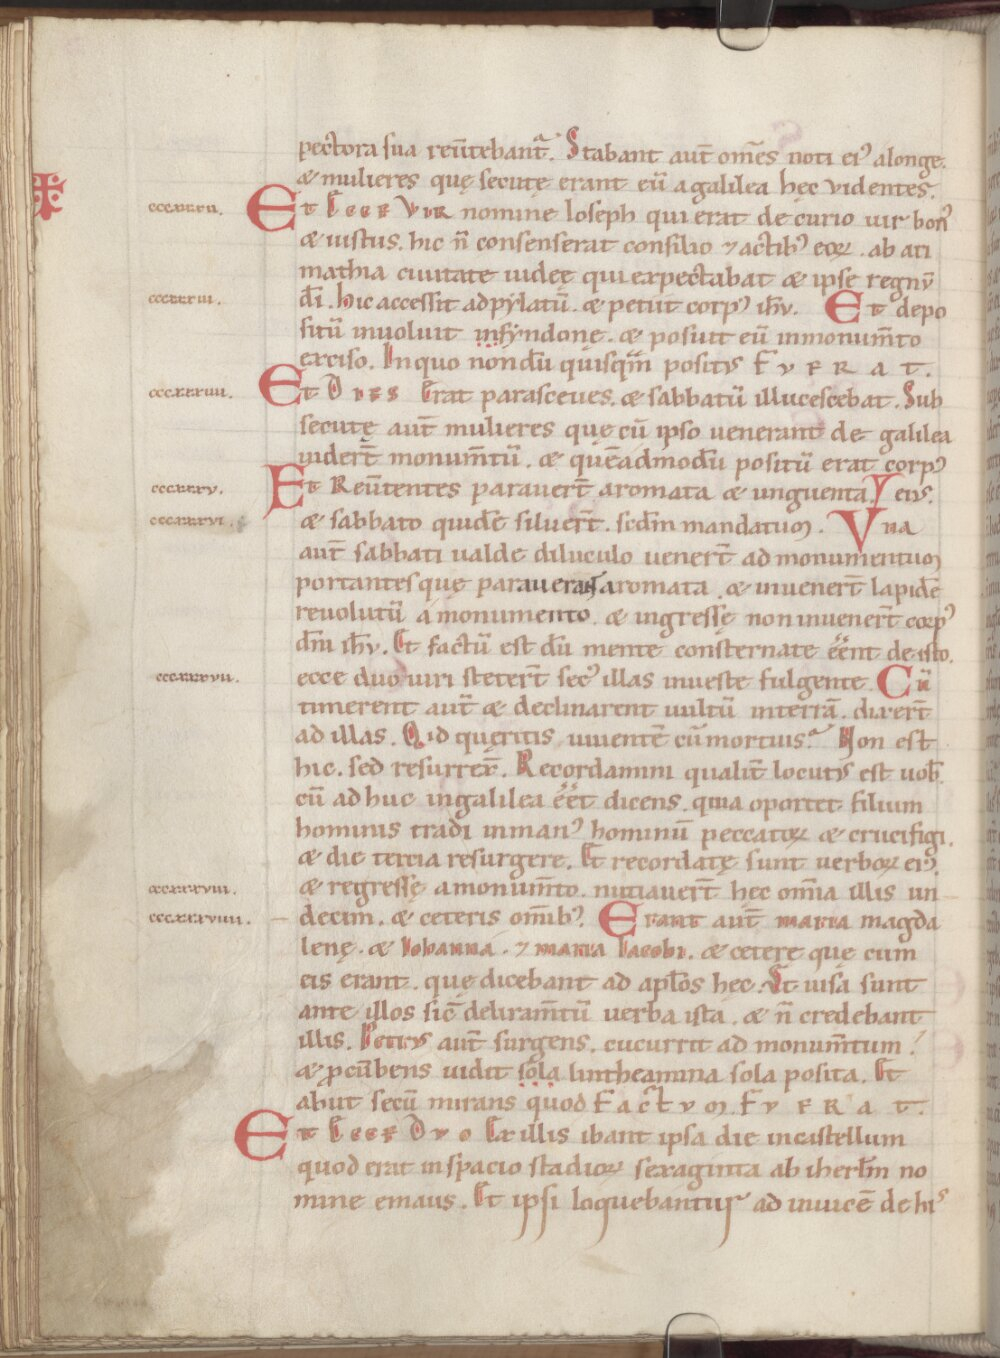 pectora sua reūtebant͛. Stabant aut̄ om̄es noti ei⁹ alonge.
& mulieres quę secutę erant eū a galilea hęc videntes.
cccxxxii. Et Ecce Vir nomine Ioseph qui erat decurio uir bon⁹
& iustus. hic n̄ consenserat consilio ⁊ actib⁹ eoꝝ. ab ati
mathia ciuitate iudeę qui expectabat & ipse regnv̄
cccxxxiii. d̄i. hic accessit ad pylatū. & petiit corp⁹ ih̄v. Et depo
sitū inuoluit insyndone. & posuit eū inmonum̄to
exciso. Inquo nondū quisq̄m posit⁹ Fverat.
cccxxxiiii. Et Dies Erat parasceues. & sabbatū illucescebat. Sub
secutę aut̄ mulieres quę cū ipso uenerant de galilea
uidert̄ monum̄tū. & quēadmodū positū erat corp⁹
cccxxxv. Et Reūtentes parauert̄ aromata & unguenta. eius.
cccxxxvi. & sabbato quidē siluert̄. sedm̄ mandatum. Vna
aut̄ sabbati ualde diluculo uenert̄ ad monumentum
portantes quę parauerant aromata. & inuenert̄ lapidē
reuolutū a monumento. & ingressę non inuenert̄ corp⁹
dn̄i ih̄v. Et factū est dū mente consternate eēnt de isto.
cccxxxvii. ecce duo uiri stetert̄ sec⁹ illas inueste fulgente. Cū
timerent aut̄ & declinarent uultū interrā. dixert̄
ad illas. Qid quęritis uiuentē cū mortuis? Non est
hic. sed resurrex̄. Recordamini qualit̄ locut⁹ est uob̄.
cū adhuc ingalilea eēt dicens. quia oportet filium
hominis tradi inman⁹ hominū peccatoꝝ & crucifigi.
& die tercia resurgere. Et recordatę sunt uerboꝝ ei⁹.
cccxxxviii. & regressę amonum̄to. nutiauert̄ hęc om̄ia illis un
cccxxxviiii. decim. & ceteris om̄ib⁹. Erant aut̄ maria magda
lenę. & Iohanna. ⁊ maria Iacobi. & ceterę quę cum
eis erant. quę dicebant ad apl̄os hęc. Et uisa sunt
ante illos sic̄ deliram̄tū uerba ista. & n̄ credebant
illis. Petrvs aut̄ surgens. cucurrit ad monum̄tum.
& ꝓcūbens uidit sola lintheamina sola posita. Et
abiit secū mirans quod Factvm Fverat.
Et Ecce Dvo Ex illis ibant ipsa die incastellum
quod erat inspacio stadioꝝ sexaginta ab iherl̄m no
mine emaus. Et ipsi loquebantur ad inuicē de his